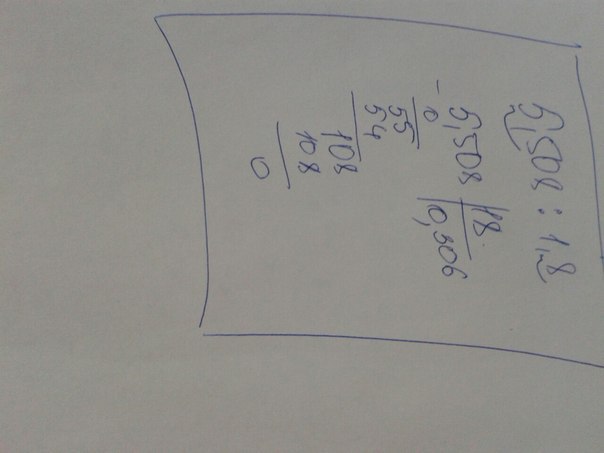 5,508 : 1,8
- 5,508 | 18
0 | 0,306
55
54
108
108
0